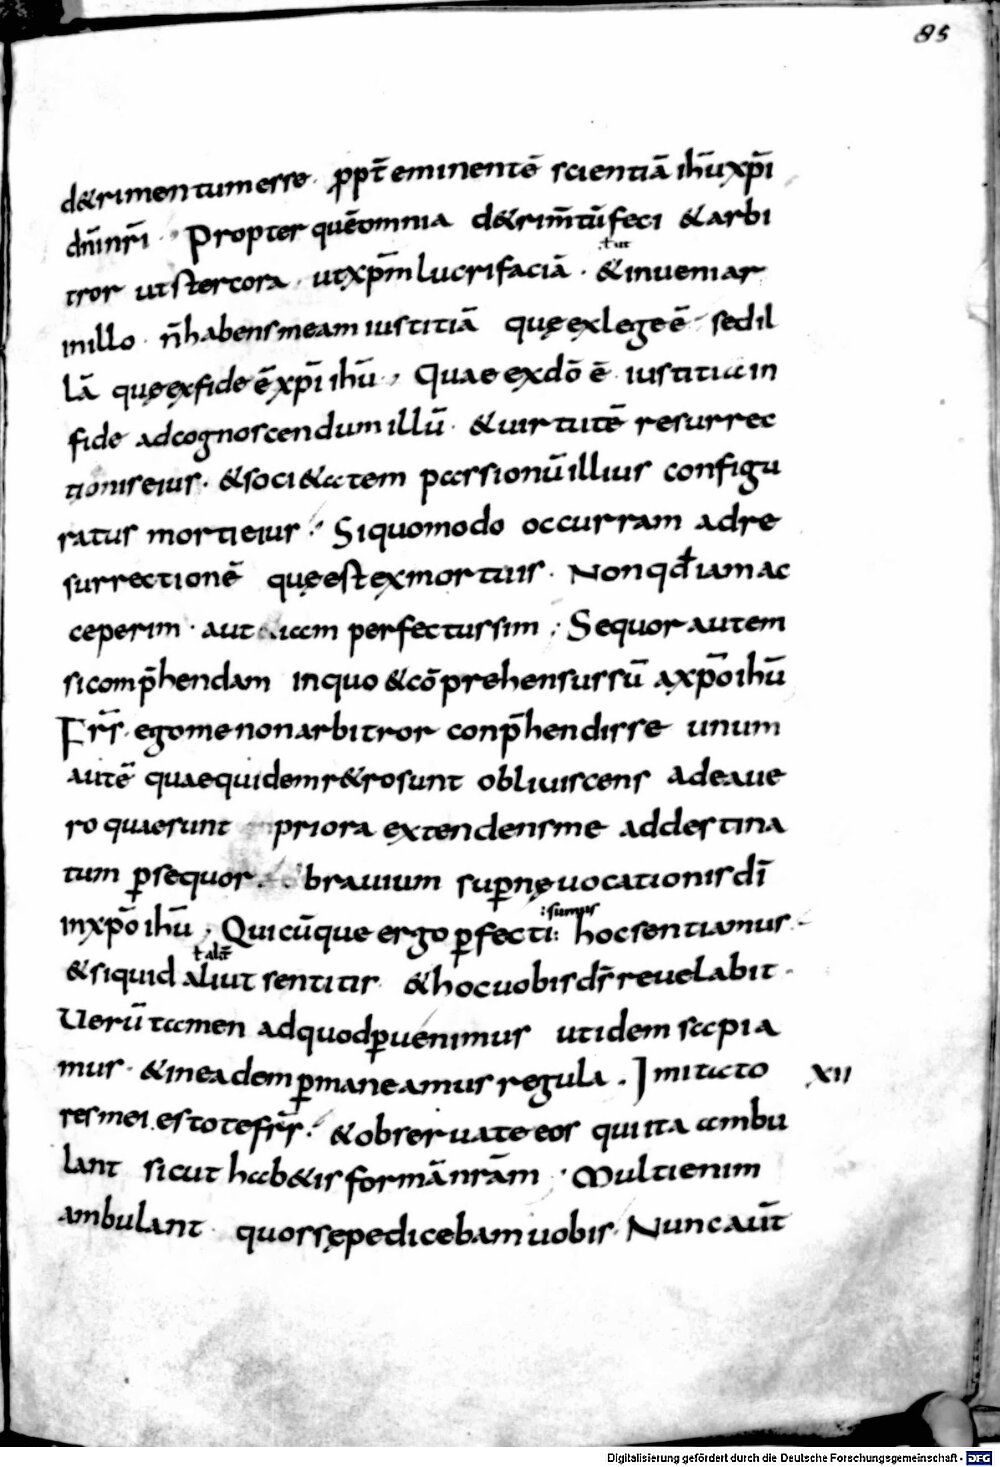 85
d&rimentum esse · ꝓpt̄ eminentē scientiā ihū xp̄i
dn̄i nr̄i · Propter quē omnia d&rim̄tū feci & arbi
ł ut
tror ut stercora · ut xp̄m lucrifaciā · & inueniar
in illo · n̄ habens meam iustitiā quę ex lege ē · sed il
lā quę ex fide ē xp̄i ihū · Quae ex dō ē iustitia in
fide ad cognoscendum illū · & uirtutē resurrec
tionis eius · & soci&atem passionū illius configu
ratus morti eius · Si quomodo occurram ad re
surrectionē quę est ex mortuis · Non qđ iam ac
ceperim · aut iam perfectus sim ; Sequor autem
si comp̄hendam in quo & cōprehensus sū a xp̄o ihū
Frs̄ · ego me non arbitror conp̄hendisse unum
autē quae quidem r&ro sunt obliuiscens ad ea ue
ro quae sunt priora extendens me ad destina
tum ꝑsequor · brauium suꝑnę uocationis dī
in xp̄o ihū · Quicūque ergo ꝑfecti : hoc sentiamus ·
: sumus
ł alit̄
& siquid aliut sentitis · & hoc uobis ds̄ reuelabit ·
Uerū tamen ad quod ꝑuenimus ut idem sapia
mus · & in eadem ꝑmaneamus regula . Imitato
XII
res mei estote frs̄ · & obseruate eos qui ita ambu
lant sicut hab&is formā nrām · Multi enim
ambulant · quos sępe dicebam uobis · Nunc aut̄
Digitalisierung gefördert durch die Deutsche Forschungsgemeinschaft - DFG